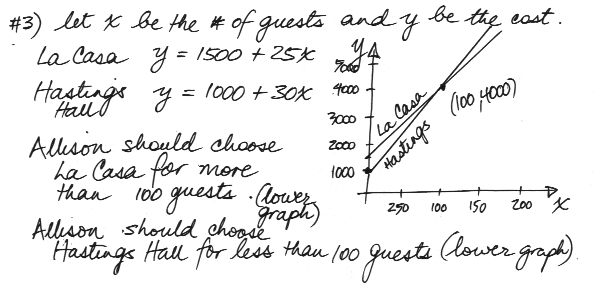 #3) let x be the # of guests and y be the cost.
La Casa y = 1500 + 25x
Hastings Hall y = 1000 + 30x
Allison should choose
La Casa for more
than 100 guests. (lower graph)
Allison should choose
Hastings Hall for less than 100 guests (lower graph).
y
5000
4000
3000
2000
1000
La Casa
Hastings
(100, 4000)
250 100 150 200 x